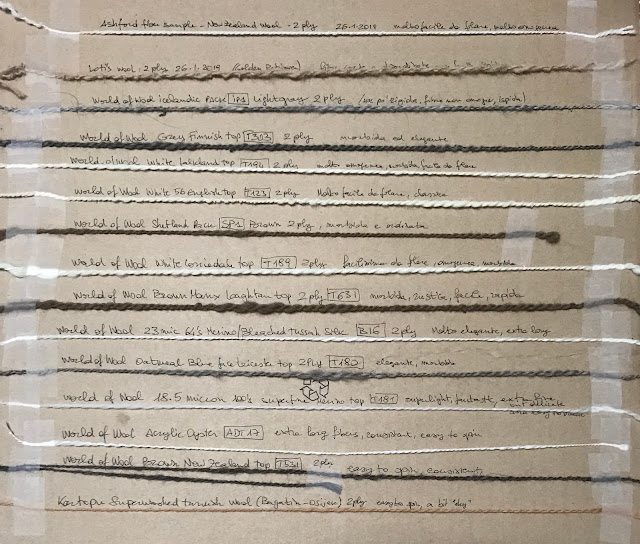 Ashford flow sample - New Zealand Wool - 2 ply 26-1-2018 molto facile da filare, molto omogenea
Letis wool - 2 ply 26.1.2018 (Golden
World of Wool Icelandic Racu IP1 Lightgray 2 ply
World of Wool Grey Finnish top T313 2 ply morbida ed elegante
World of Wool White Falkland top T194 2 ply molto omogenea, morbida facile da filare
World of Wool White 56 English top T123 2 ply Molto facile da filare, classica
World of Wool Shetland Racu SP1 Brown 2 ply, morbida e ordinata
World of Wool White Corriedale top T189 2ply facilissima da filare, omogenea, morbida
World of Wool Brown Manx Loaghtan top 2 ply T631 morbida, rustica, facile, rapida
World of Wool 23 mic 64's Merino/Bleached tussah Silk B16 2 ply Molto elegante, extra long
World of Wool Oatmeal Blue faceleicester top 2Ply T180 elegante, morbida
World of Wool 18.5 micron 100's superfine Merino top T181 superlight, extra fine
World of Wool Acrylic Oyster ADT17 extra long fibers, consistent, easy to spin
World of Wool Brown New Zealand top T531 2ply easy to spin, consistent,
Kartopu Superwashed turkish Wool (Bagatin - Osijek) 2ply easy to spin, a bit "dry"